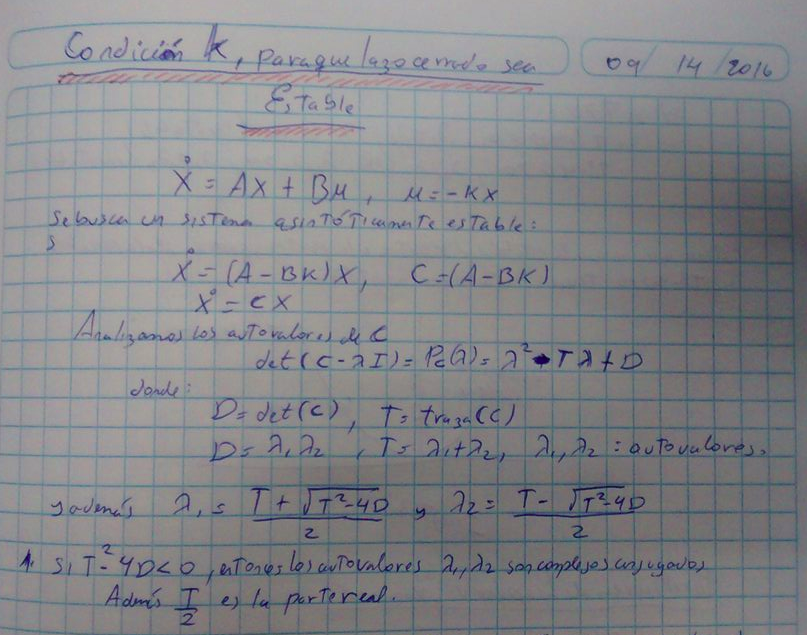 Condición K, para que lazo cerrado sea
09/ 14 /2016
Estable
Ẋ = AX + Bu, u = -KX
se busca un sistema asintóticamente estable:
Ẋ = (A - BK)X, C = (A - BK)
Ẋ = CX
Analizamos los autovalores de C
det(C - λI) = Pc(λ) = λ² - Tλ + D
donde:
D = det(C), T = traza(C)
D = λ₁λ₂, T = λ₁+λ₂, λ₁, λ₂ : autovalores.
y además λ₁ = (T + √(T²-4D))/2 y λ₂ = (T - √(T²-4D))/2
1. Si T²-4D<0, entonces los autovalores λ₁, λ₂ son complejos conjugados
Admás T/2 es la parte real.